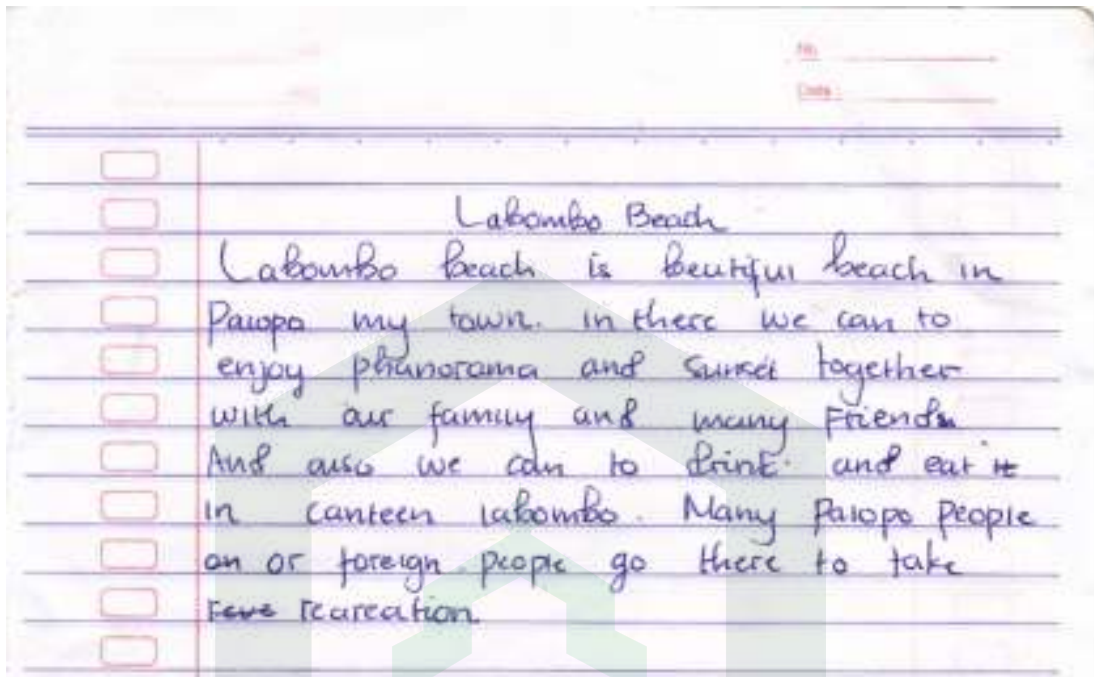 No
Date :
Labombo Beach
Labombo beach is beutiful beach in
Palopo my town. in there we can to
enjoy phanorama and sunset together
with our family and many Friends
And also we can to drink. and eat it
in canteen labombo. Many Palopo people
on or foreign people go there to take
recareation